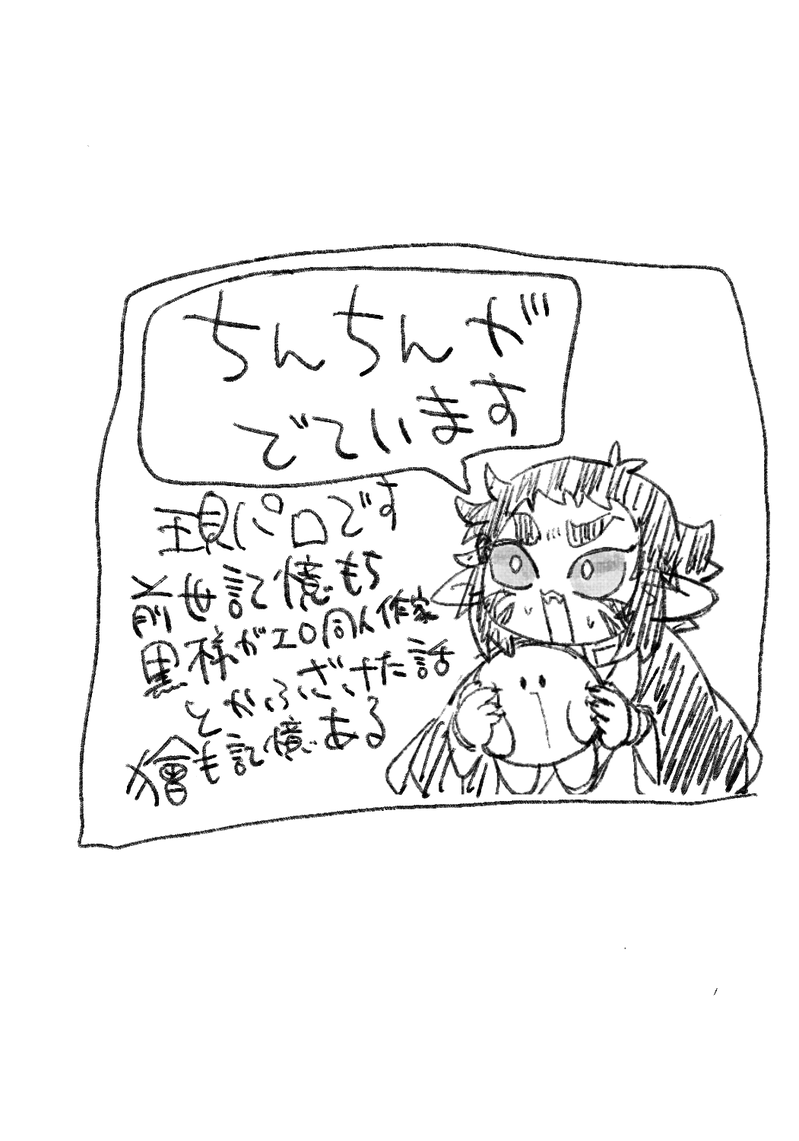 ちんちんが
でています
現パロです
前世記憶もち
黒様がエロ同人作家
とかふざけた話
獪も記憶ある